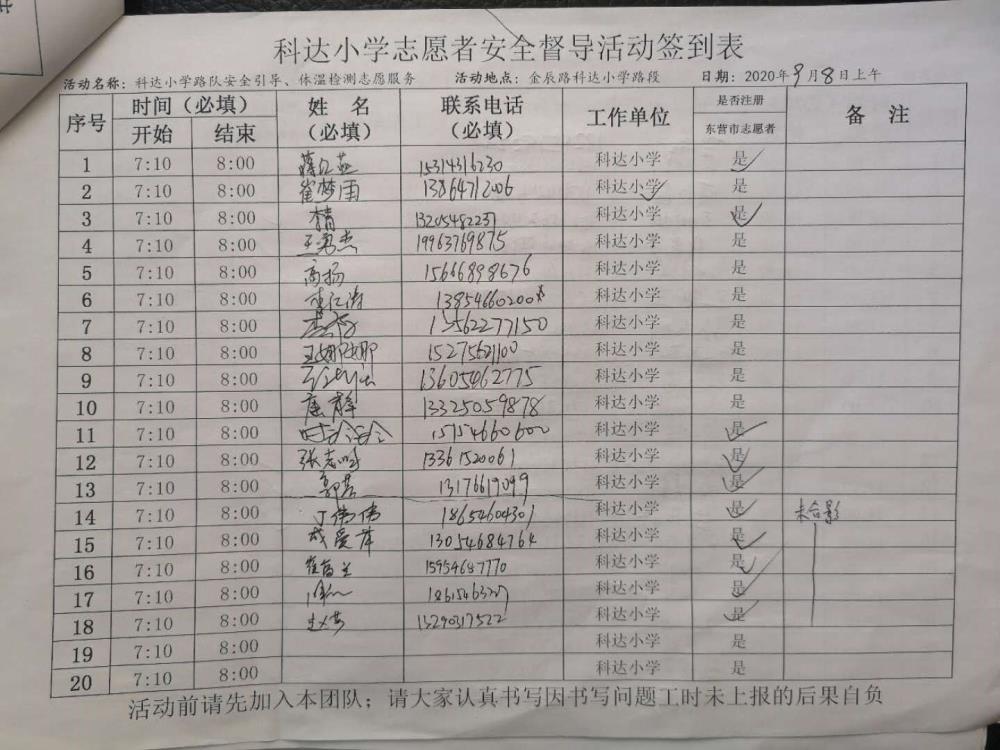 科达小学志愿者安全督导活动签到表
活动名称：科达小学路队安全引导、体温检测志愿服务 活动地点：金辰路科达小学路段 日期：2020年9月8日上午
序号 时间（必填） 姓 名（必填） 联系电话（必填） 工作单位 是否注册 备 注
开始 结束 东营市志愿者
1 7:10 8:00 15314316230 科达小学 是
2 7:10 8:00 崔梦雨 13864712006 科达小学 是
3 7:10 8:00 13205482237 科达小学 是
4 7:10 8:00 王勇杰 19963769875 科达小学 是
5 7:10 8:00 高扬 15666898676 科达小学 是
6 7:10 8:00 李江涛 科达小学 是
7 7:10 8:00 13562277150 科达小学 是
8 7:10 8:00 王娜娜 15275621100 科达小学 是
9 7:10 8:00 13605462775 科达小学 是
10 7:10 8:00 13325059878 科达小学 是
11 7:10 8:00 15154660600 科达小学 是
12 7:10 8:00 13361520061 科达小学 是
13 7:10 8:00 13176619099 科达小学 是
14 7:10 8:00 丁伟伟 18654604301 科达小学 是 未合影
15 7:10 8:00 成爱萍 13054684764 科达小学 是
16 7:10 8:00 15954687770 科达小学 是
17 7:10 8:00 科达小学 是
18 7:10 8:00 科达小学 是
19 7:10 8:00 科达小学 是
20 7:10 8:00 科达小学 是
活动前请先加入本团队；请大家认真书写因书写问题工时未上报的后果自负